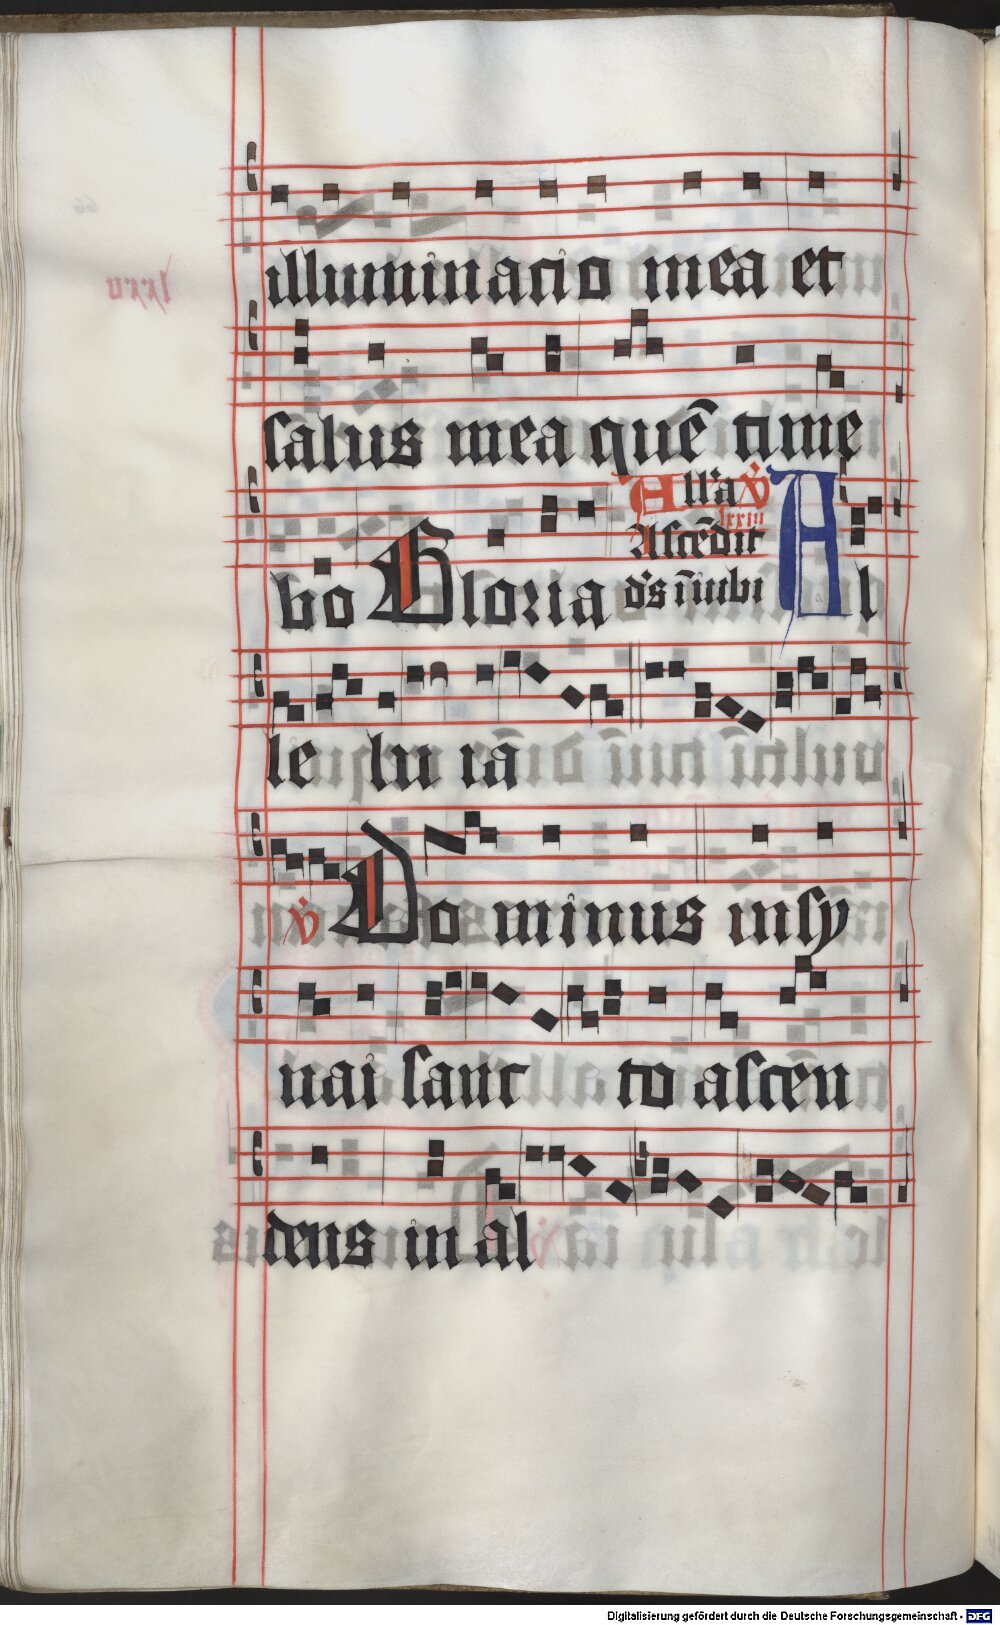 illuminacio mea et
salus mea quē time
bo Gloria All'a v̇ lxxiii Ascēdit d's ī iubi Al
le lu ia
v̇ Do minus in sy
nai sanc to ascen
dens in al
lxxii
Digitalisierung gefördert durch die Deutsche Forschungsgemeinschaft - DFG